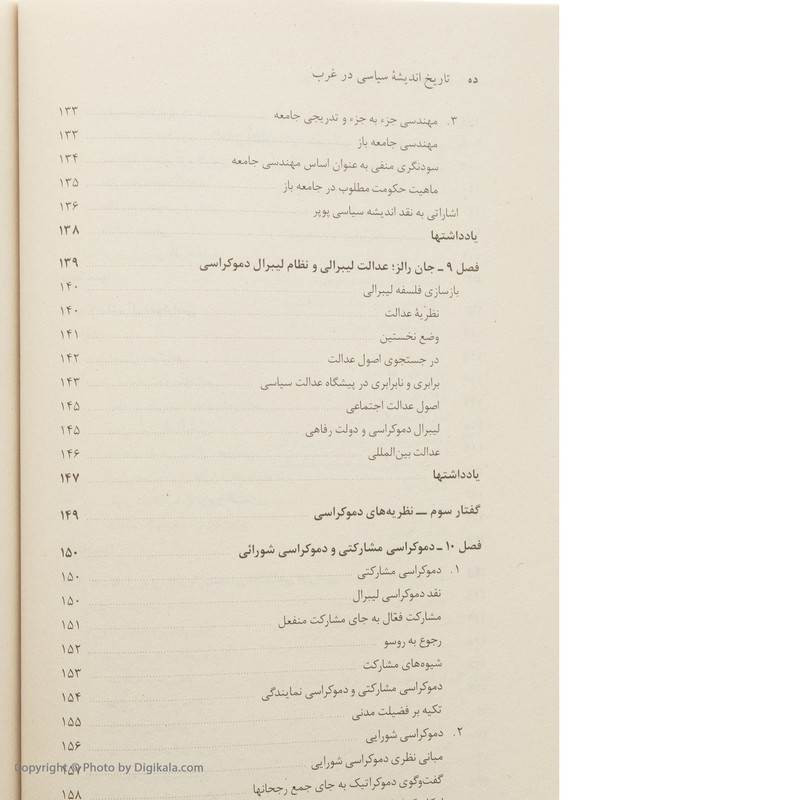 ده تاریخ اندیشهٔ سیاسی در غرب
۳. مهندسی جزء به جزء و تدریجی جامعه ۱۳۳
مهندسی جامعه باز ۱۳۳
سودنگری منفی به عنوان اساس مهندسی جامعه ۱۳۴
ماهیت حکومت مطلوب در جامعه باز ۱۳۵
اشاراتی به نقد اندیشه سیاسی پوپر ۱۳۶
یادداشتها ۱۳۸
فصل ۹ ـ جان رالز؛ عدالت لیبرالی و نظام لیبرال دموکراسی ۱۳۹
بازسازی فلسفه لیبرالی ۱۴۰
نظریهٔ عدالت ۱۴۰
وضع نخستین ۱۴۱
در جستجوی اصول عدالت ۱۴۲
برابری و نابرابری در پیشگاه عدالت سیاسی ۱۴۳
اصول عدالت اجتماعی ۱۴۵
لیبرال دموکراسی و دولت رفاهی ۱۴۵
عدالت بین‌المللی ۱۴۶
یادداشتها ۱۴۷
گفتار سوم ــ نظریه‌های دموکراسی ۱۴۹
فصل ۱۰ ـ دموکراسی مشارکتی و دموکراسی شورائی ۱۵۰
۱. دموکراسی مشارکتی ۱۵۰
نقد دموکراسی لیبرال ۱۵۰
مشارکت فعّال به جای مشارکت منفعل ۱۵۱
رجوع به روسو ۱۵۲
شیوه‌های مشارکت ۱۵۳
دموکراسی مشارکتی و دموکراسی نمایندگی ۱۵۴
تکیه بر فضیلت مدنی ۱۵۵
۲. دموکراسی شورایی ۱۵۶
مبانی نظری دموکراسی شورایی ۱۵۷
Copyright © Photo by Digikala.com
گفت‌وگوی دموکراتیک به جای جمع رجحانها ۱۵۸